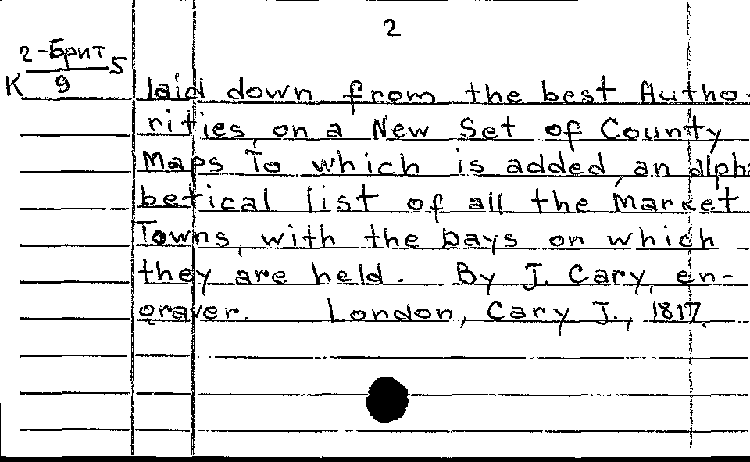 2
2-Брит
К 9 5
laid down from the best Autho-
rities, on a New Set of County
Maps To which is added, an alpha
betical list of all the Market
Towns, with the Days on which
they are held. By J. Cary, en-
graver. London, Cary J., 1817.